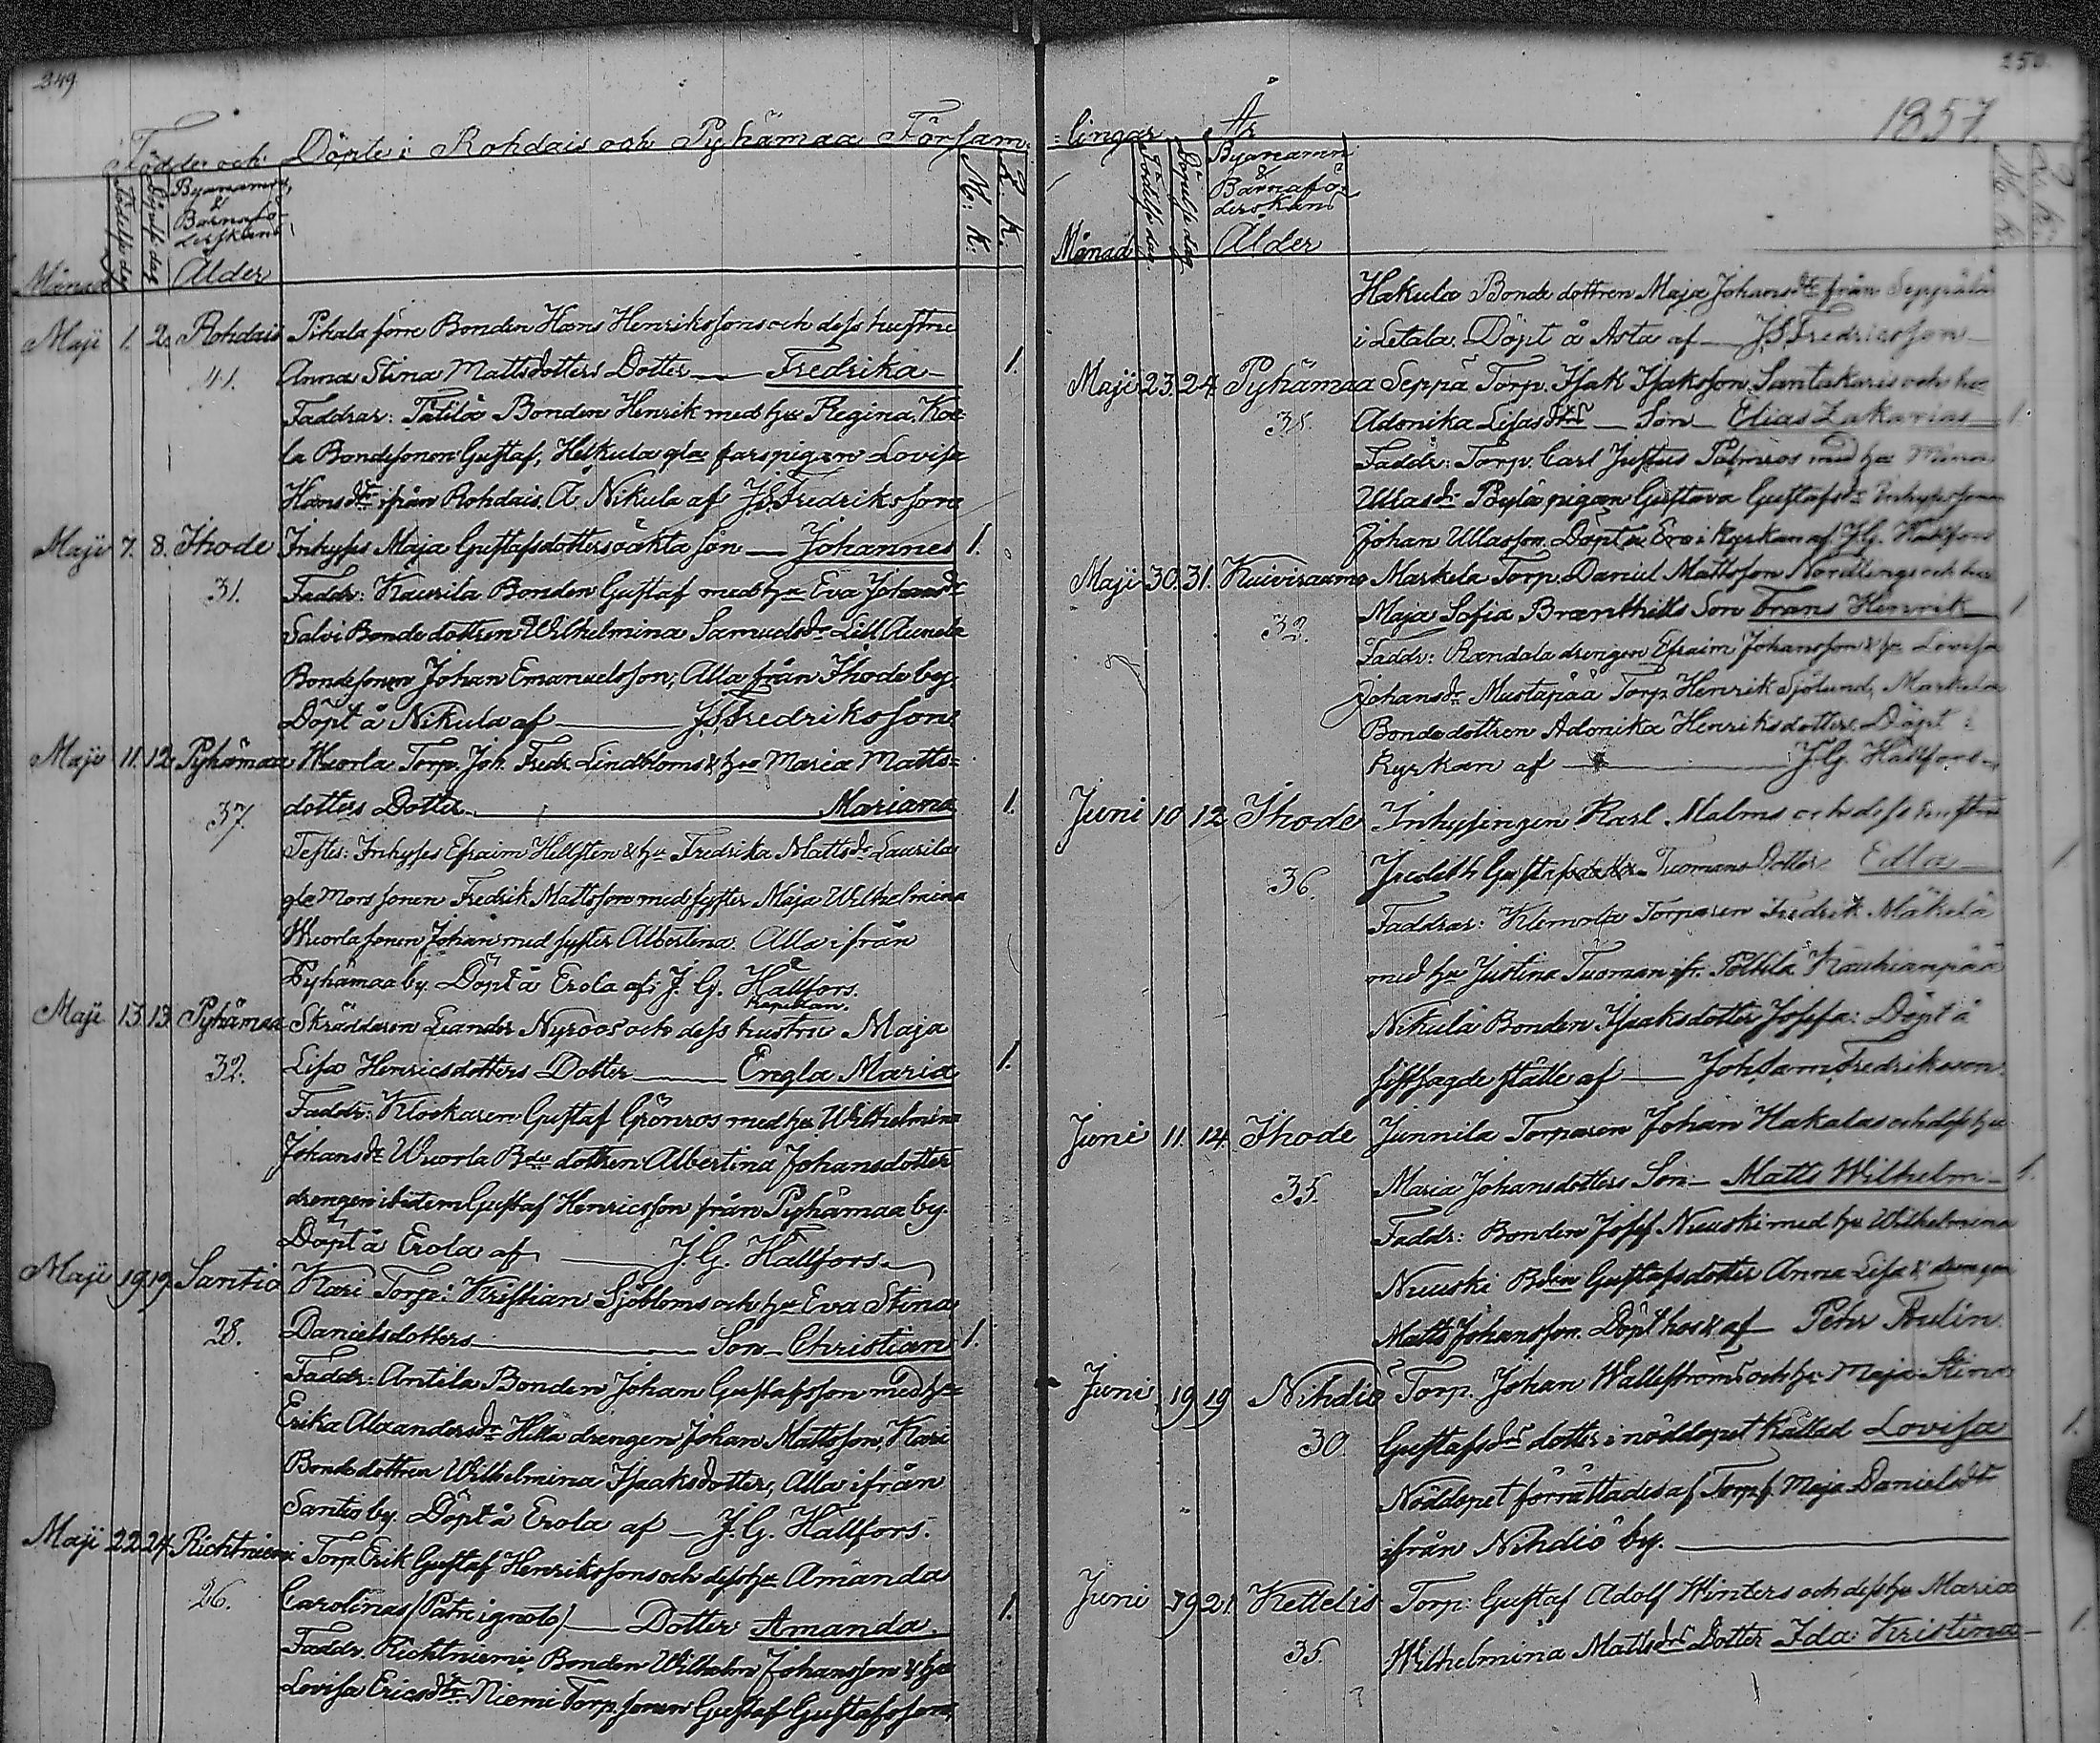 349
Födde och Döpte i Rohdais och Pyhämaa Församlingar År
Månad Födelse dag Döpelse dag Byanamn & Barnaföderskans Ålder M: K. Q. K.
Maji 1. 2. Rohdais Pihala förre Bonden Hans Henrikssons och dess hustru
41. Anna Stina Mattsdotters Dotter — Fredrika — 1.
Faddrar: Tätilä Bonden Henrik med hu Regina, Kot-
la Bondesonen Gustaf, Helkula gla farspigan Lovisa
Hansdtr ifrån Rohdais. Å Nikula af J. S. Fredriksson
Maji 7. 8. Ihode Inhyses Maja Gustafsdotters oäkta son — Johannes 1.
31. Faddr: Kaurila Bonden Gustaf med hu Eva Johansdr
Salvi Bonde dottren Wilhelmina Samuelsdr Lill Aunela
Bondesonen Johan Emanuelsson; Alla från Ihode by.
Döpt å Nikula af — J. S. Fredriksson
Maji 11. 12. Pyhämaa Wuorla Torp. Joh. Fredr. Lindbloms & hu Maria Matts-
37. dotters Dotter — Mariana 1.
Testes: Inhyses Efraim Hellsten & hu Fredrika Mattsdr Laurila
gla Mors sonen Fredrik Mattsson med syster Maja Wilhelmina
Wuorla sonen Johan med syster Albertina. Alla ifrån
Pyhämaa by. Döpt å Erola af J. G. Hallfors.
Kapellan.
Maji 13. 13. Pyhämaa Skräddaren Leander Nyroos och dess hustru Maja
32. Lisa Henricsdotters Dotter — Engla Maria 1.
Faddr: Klockaren Gustaf Grönros med hu Wilhelmina
Johansdr Wuorla Bde dottren Albertina Johansdotter
drengen ibidem Gustaf Henricsson från Pyhämaa by.
Döpt å Erola af — J. G. Hallfors.
Maji 19. 19. Santio Kari Torp: Kristian Sjöbloms och hu Eva Stina
28. Danielsdotters — Son — Christian 1.
Faddr: Antila Bonden Johan Gustafsson med hu
Erika Alexandersdr Hilla drengen Johan Mattsson, Kari
Bonde dottren Wilhelmina Isaksdotter, Alla ifrån
Santio by. Döpt å Erola af — J. G. Hallfors.
Maji 22. 24. Richtniemi Torp. Erik Gustaf Henrikssons och dess hu Amanda
26. Carolinas (Patre ignoto) — Dotter Amanda. 1.
Faddr. Richtniemi Bonden Wilhelm Johansson & hu
Lovisa Ericsdtr Niemi Torp. sonen Gustaf Gustafsson,
250
1857
Månad Födelse dag Döpelse dag Byanamn & Barnaföderskans Ålder M. K. Q. K.
Hakula Bonde dottren Maja Johansdtr från Seppälä
i Letala. Döpt å Asta af — J. S. Fredricsson
Maji 23. 24. Pyhämaa Seppä Torp. Isak Isaksson Santakaris och hu
38. Adonika Lisasdtrs — Son — Elias Zakarias — 1.
Faddr: Torp. Carl Justus Palmros med hu Mina
Ullasdr Pylä pigan Gustava Gustafsdr Inhyses sonen
Johan Ullasson. Döpt å Ero i Kyrkan af J. G. Hallfors
Maji 30. 31. Kuiviraumo Markela Torp. Daniel Mattsson Nordlings och hu
32. Maja Sofia Brænthills Son Frans Henrik 1
Faddr: Rændala drengen Efraim Johansson & hu Lovisa
Johansdr Mustapää Torp. Henrik Sjölund, Markela
Bonde dottren Adonika Henriksdotter. Döpt i
Kyrkan af — J. G. Hallfors
Juni 10 12 Ihode Inhysingen Karl Malms och dess hustru
36. Tuomans Dotter Edla — 1
Faddrar: Klemola Torparen Fredrik Mäkelä
med hu Justina Tuoman ifr. Polttila Kauhianpää
Nikula Bonden Isaksdotter Josefa: Döpt å
sistsagde ställe af — Joh. Sam. Fredriksson.
Juni 11. 14. Ihode Junnila Torparen Johan Hakalas och dess hu
35. Maria Johansdotters Son — Matts Wilhelm — 1.
Faddr: Bonden Josef Nuuski med hu Wilhelmina
Nuuski Bden Gustafsdotter Anna Lisa & drengen
Matts Johansson. Döpt hos & af Pehr Poulin.
Juni 19 19 Nihdiö Torp. Johan Wallströms och hu Maja Stina
30. Gustafsdrs dotter i nöddopet kallad Lovisa 1.
Nöddopet förrättades af Torp. Maja Danielsdtr
ifrån Nihdiö by. —
Juni 19 21. Kettelis Torp: Gustaf Adolf Winters och dess hu Maria
35. Wilhelmina Mattsdrs Dotter Ida Kristina — 1.